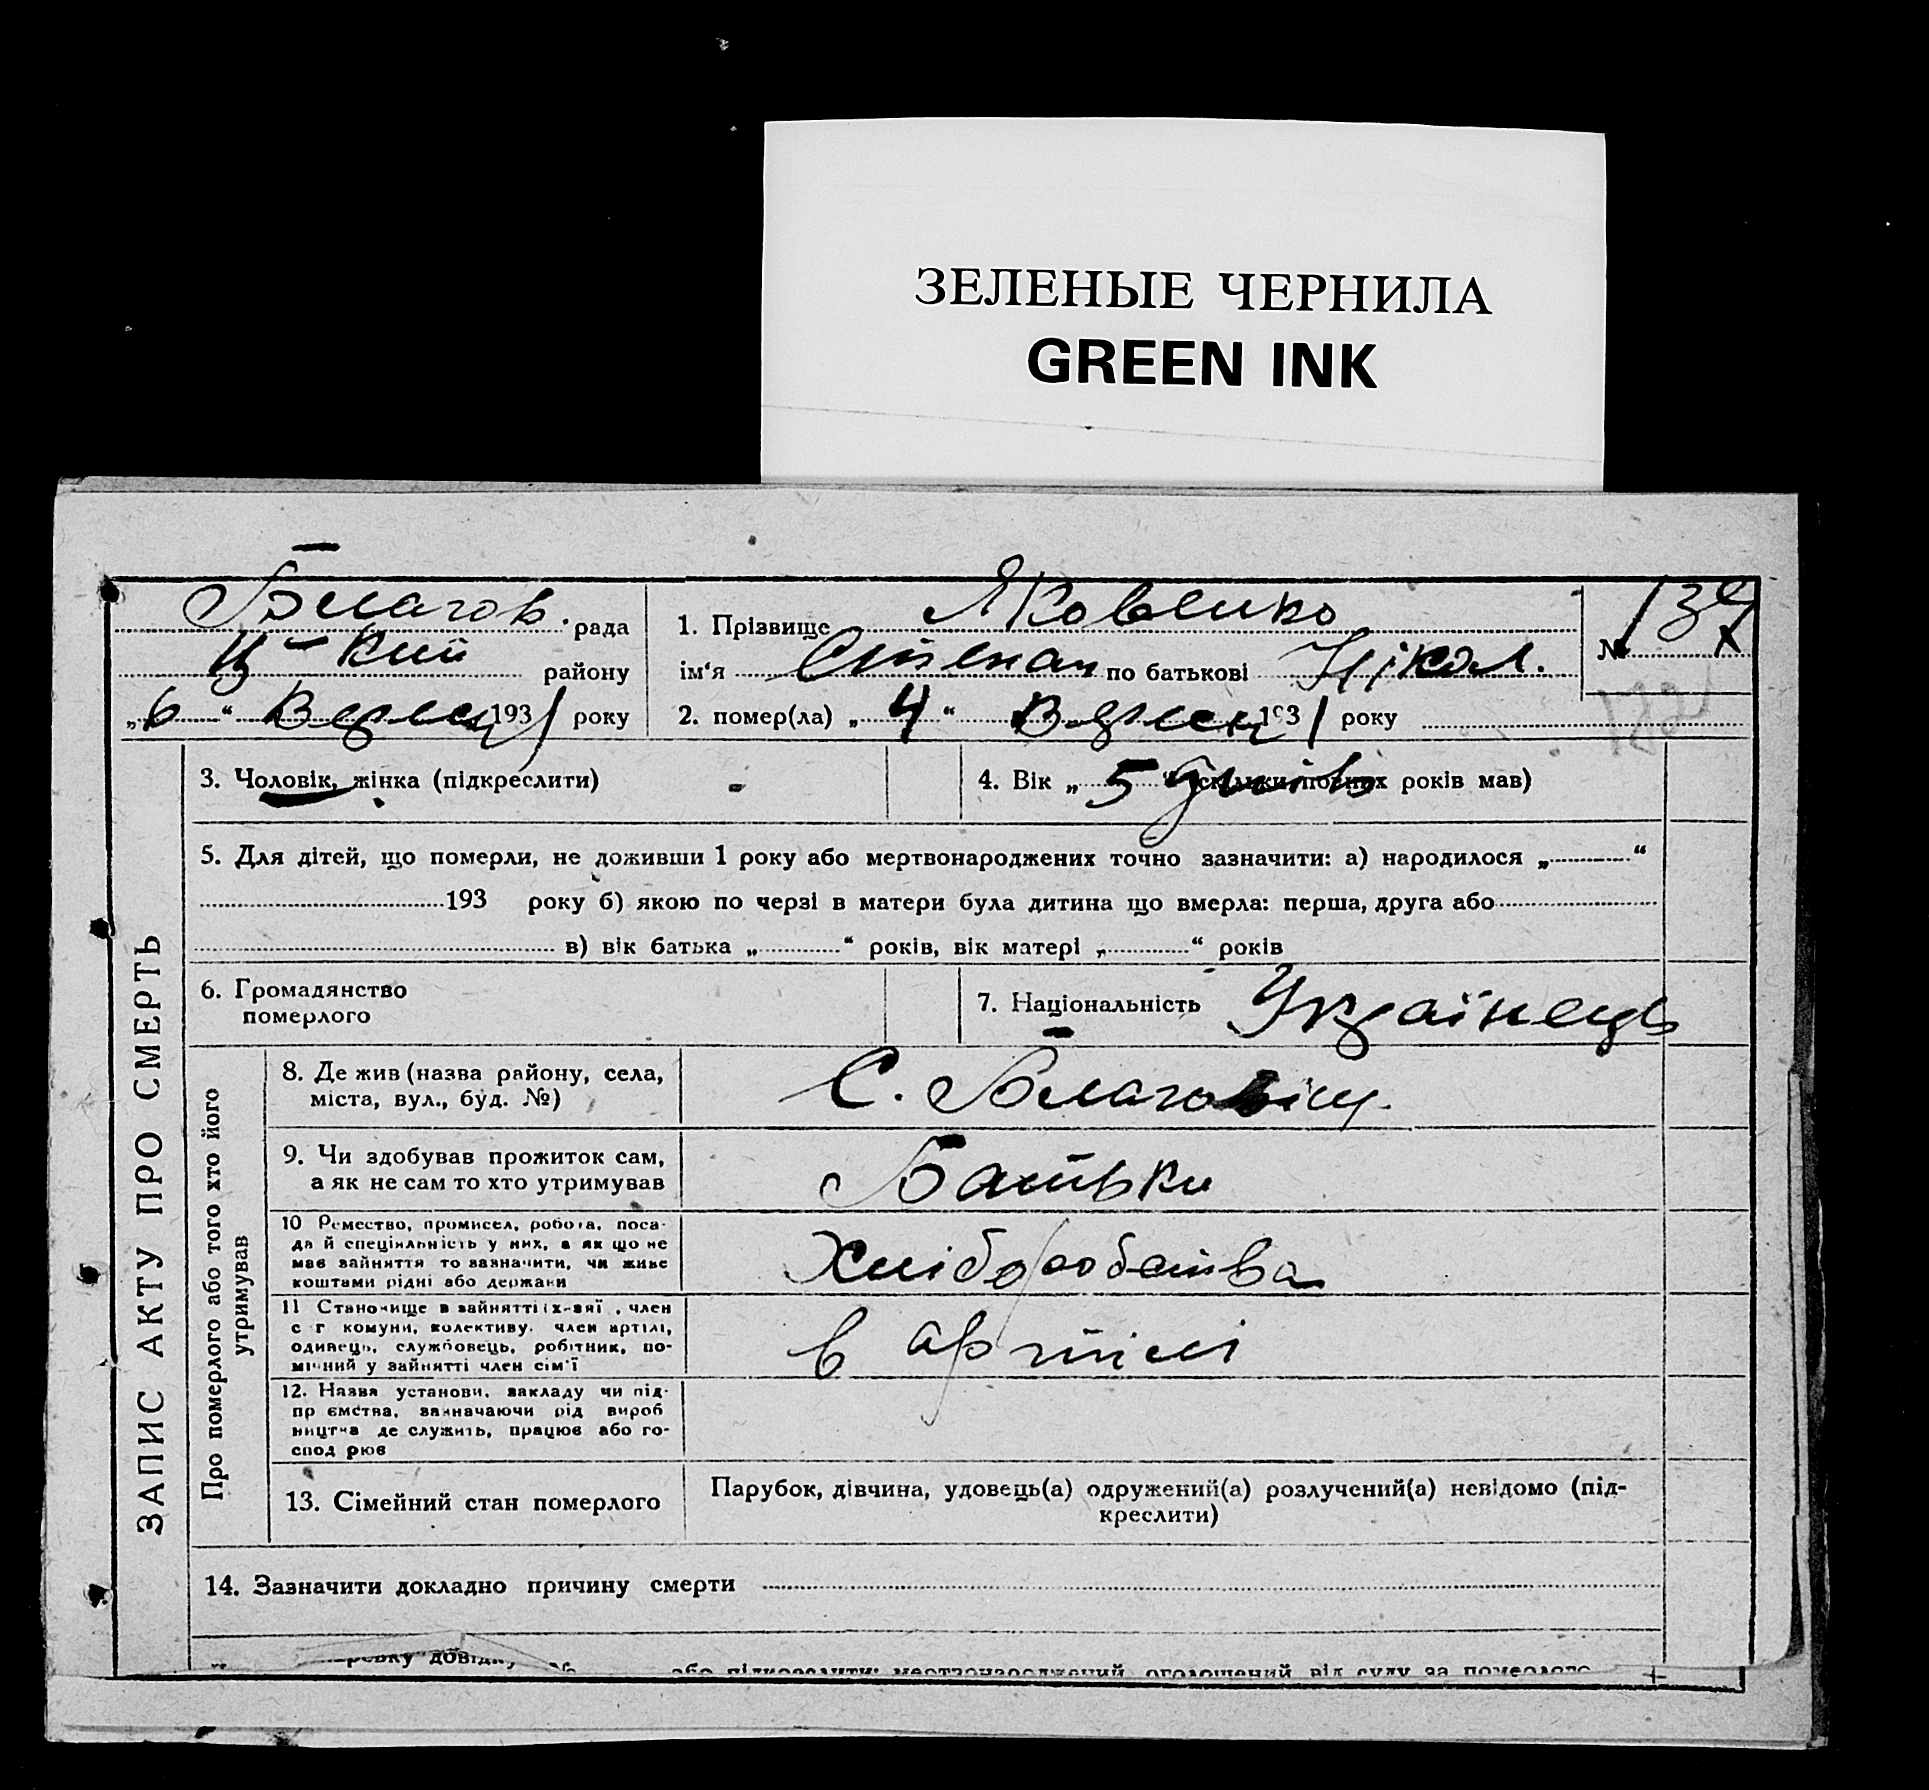 ЗЕЛЕНЫЕ ЧЕРНИЛА
GREEN INK
Благов. рада
Ц-кий району
„6“ Вересн 1931 року
1. Прізвище Яковенко
ім‘я Степан по батькові Нікол.
2. помер(ла) „4“ Вересн 1931 року
№ 137
3. Чоловік, жінка (підкреслити)
4. Вік „5 (скільки повних років мав)
5. Для дітей, що померли, не доживши 1 року або мертвонароджених точно зазначити: а) народилося „ “
193 року б) якою по черзі в матери була дитина що вмерла: перша, друга або
в) вік батька „ “ років, вік матері „ “ років
6. Громадянство
померлого
7. Національність Українець
ЗАПИС АКТУ ПРО СМЕРТЬ
Про померлого або того хто його
утримував
8. Де жив (назва району, села,
міста, вул., буд. №)
С. Благовіщ.
9. Чи здобував прожиток сам,
а як не сам то хто утримував
Батьки
10 Ремество, промисел, робота, поса-
да й спеціяльність у них, а як що не
має зайняття то зазначити, чи живе
коштами рідні або держави
Хліборобства
11 Становище в зайнятті, член
с г комуни, колективу, член артілі,
одинець, службовець, робітник, по-
мічний у зайнятті член сім'ї
в артілі
12. Назва установи, закладу чи під-
пр ємства, зазначаючи рід вироб
ництва де служить, працює або го-
спод рює
13. Сімейний стан померлого
Парубок, дівчина, удовець(а) одружений(а) розлучений(а) невідомо (під-
креслити)
14. Зазначити докладно причину смерти
довідку № або підкреслити: мертвонароджений, оголошений від суду за померлого